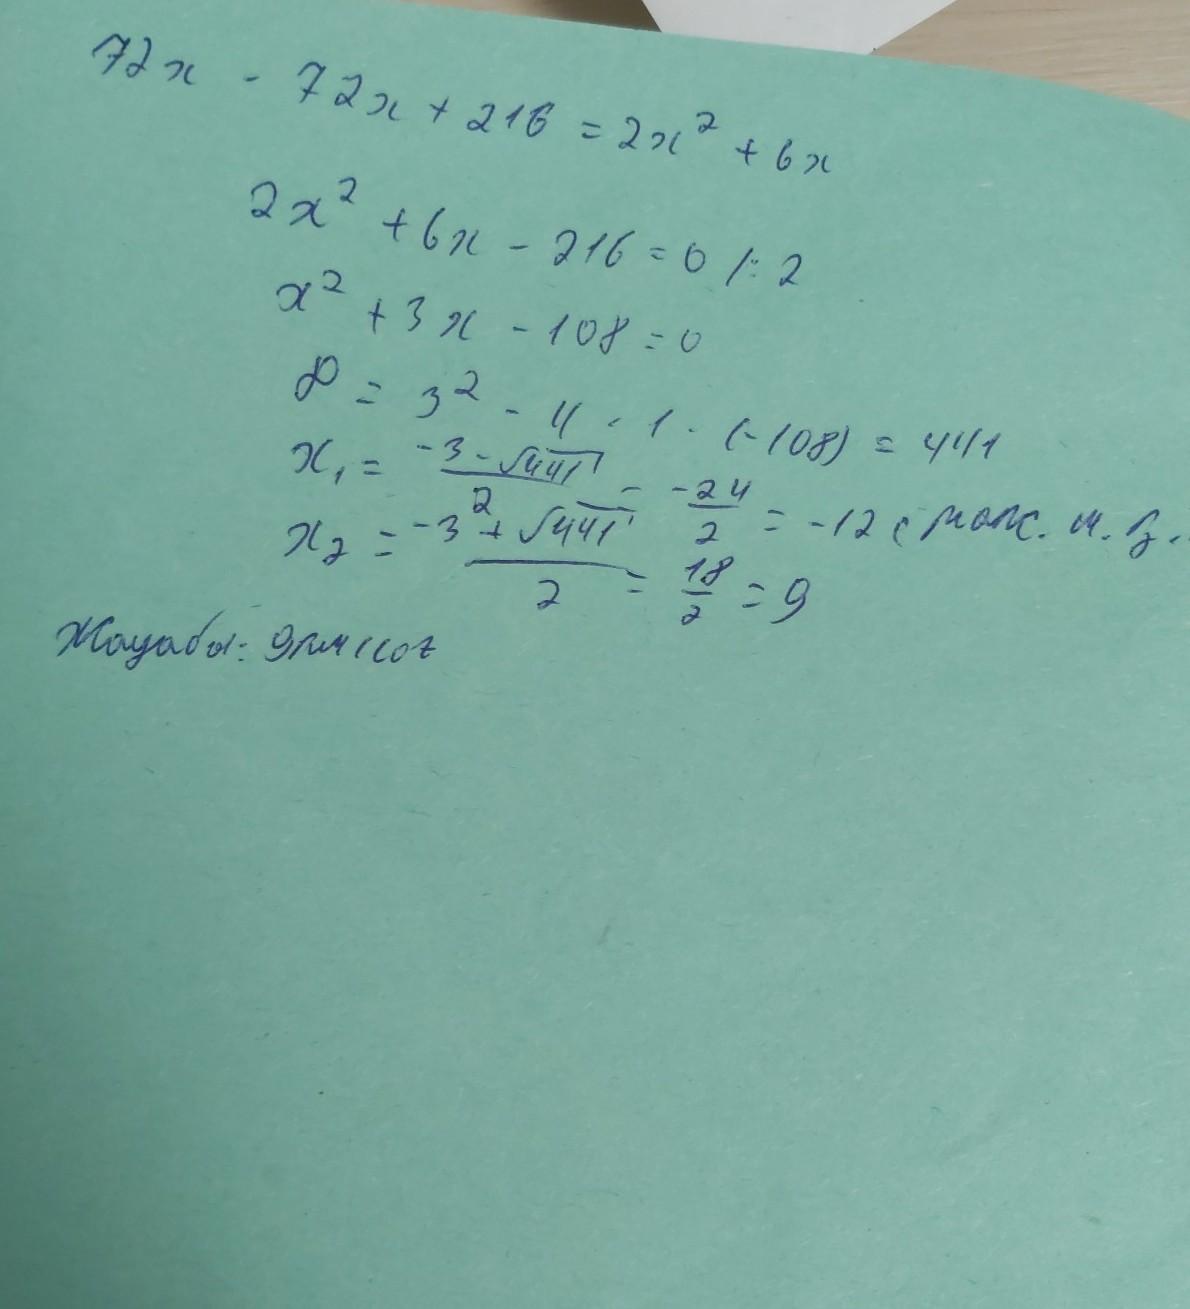 72x - 72x + 216 = 2x² + 6x
2x² + 6x - 216 = 0 /: 2
x² + 3x - 108 = 0
D = 3² - 4 · 1 · (-108) = 441
x₁ = (-3 - √441)/2 = -24/2 = -12
x₂ = (-3 + √441)/2 = 18/2 = 9
Жауабы: 9км/сағ